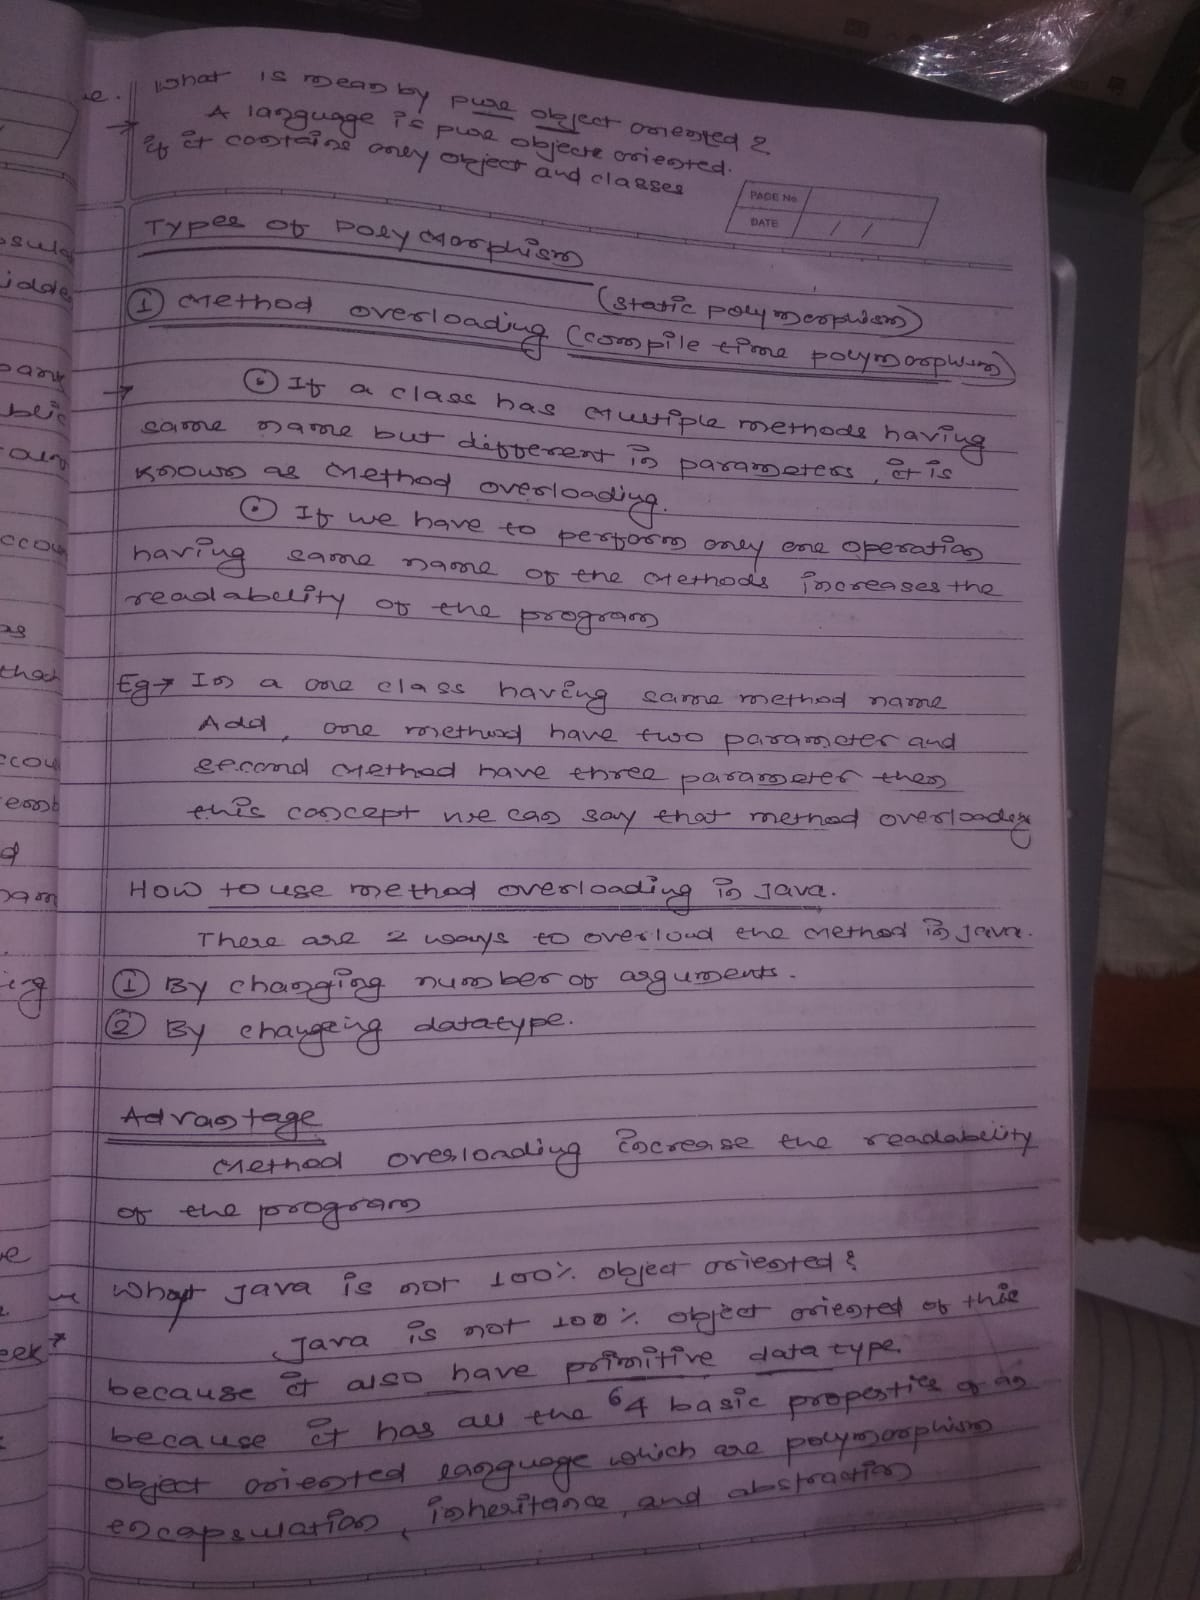 What is mean by pure object oriented ?
→ A language is pure objecte oriented.
if it contains only object and classes
PAGE No.
DATE / /
Types of Polymorphism
(static polymorphism)
① Method overloading (compile time polymorphism)
→ ⊙ If a class has Multiple methods having
same name but different in parameters, it is
known as Method overloading.
⊙ If we have to perform only one operation
having same name of the Methods increases the
readability of the program
Eg → In a one class having same method name
Add, one method have two parameter and
second Method have three parameter then
this concept we can say that method overloading
How to use method overloading in Java.
There are 2 ways to overload the Method in Java.
① By changing number of arguments.
② By changeing datatype.
Advantage
Method overloading increase the readability
of the program
What Java is not 100% object oriented ?
Java is not 100% object oriented of this
because it also have primitive data type.
because it has all the 4 basic properties of an
object oriented language which are polymorphism
encapsulation, inheritance, and abstraction